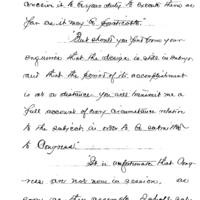 it is to be your duty to break them as
far as it may be practicable.
"But should you find from your
enquiries that the design is still in embryo
and that the period of its accomplishment
is at a distance you will transmit me a
full account of every circumstance relative
to the subject in order to be submitted
to Congress."
"It is unfortunate that Cong-
ress are not now in session, as
soon as they assemble I shall